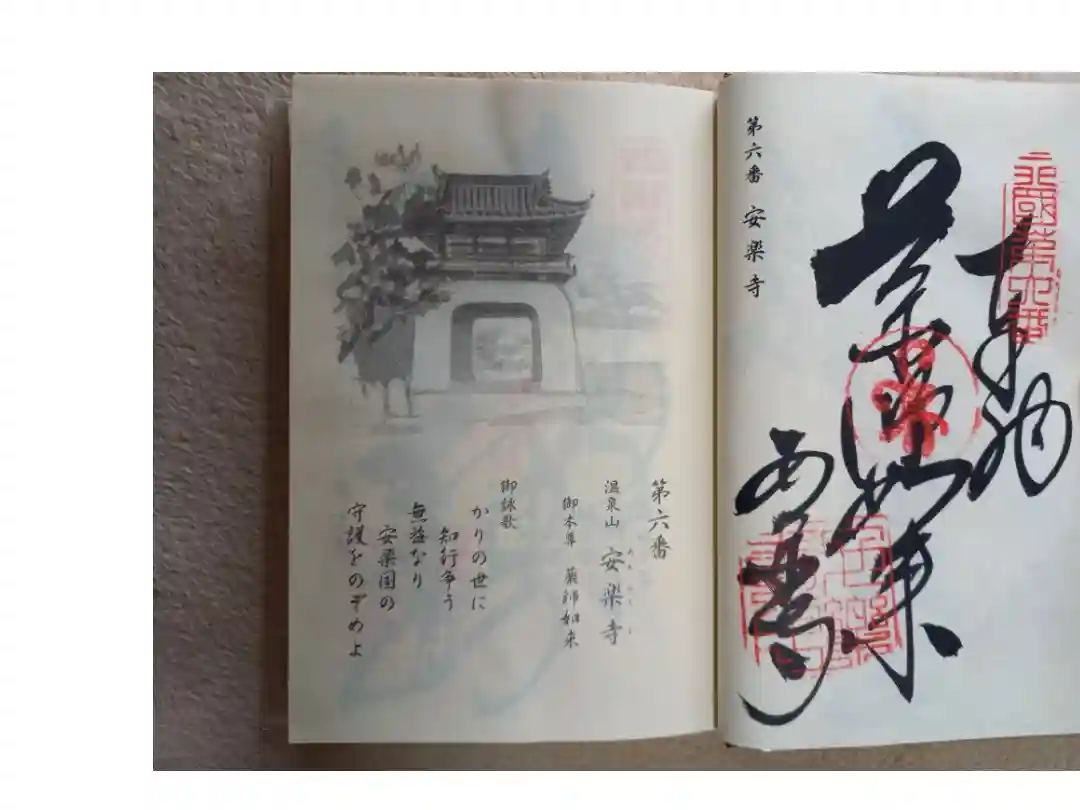 奉納
薬師如来
安楽寺
四國第六番
第六番 安楽寺
第六番
温泉山 安楽寺
あんらくじ
御本尊 薬師如来
御詠歌
かりの世に
知行争う
無益なり
安楽国の
守護をのぞめよ